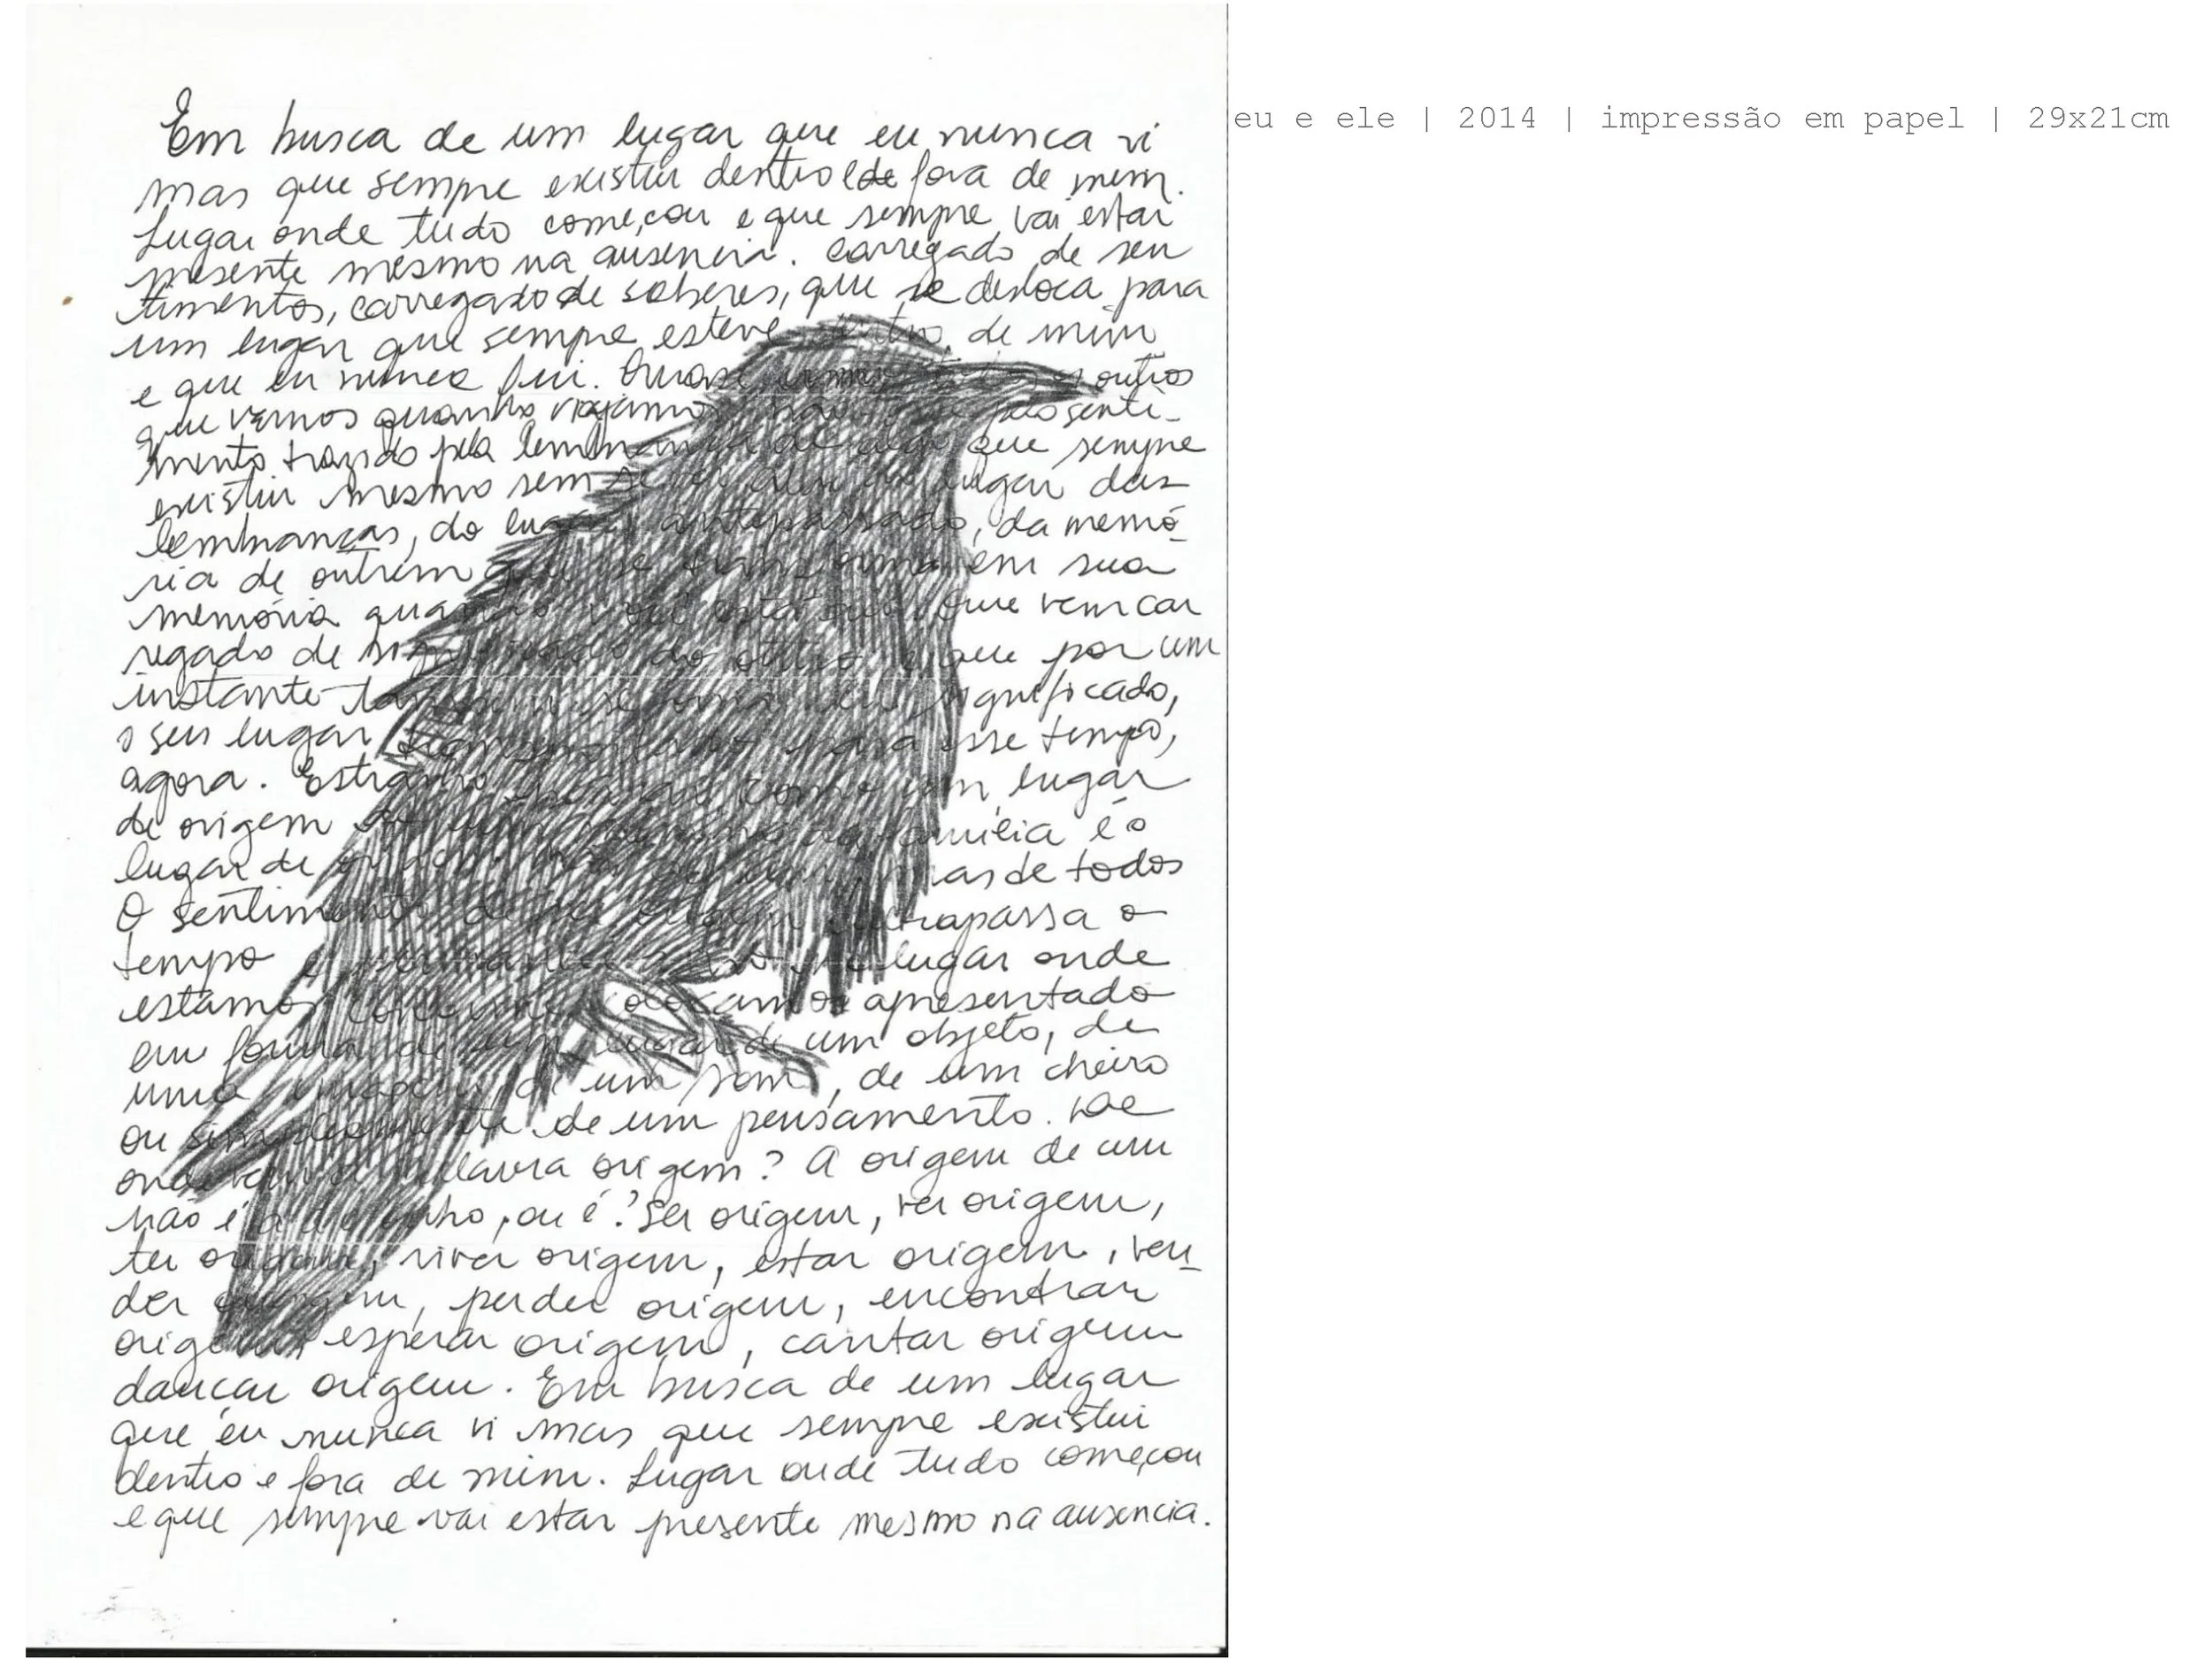 Em busca de um lugar que eu nunca vi
mas que sempre existiu dentro e de fora de mim.
Lugar onde tudo começou e que sempre vai estar
presente mesmo na ausencia. Carregado de sen
timentos, carregado de saberes, que se desloca para
um lugar que sempre esteve dentro de mim
e que eu nunca fui. Quase os outros
que vemos quando viajamos pelo senti-
mento trazido pela lembrança de algo que sempre
existiu mesmo sem lugar das
lembranças, do lugar antepassado, da memó-
ria de outrem que se transforma em sua
memória quando você está que vem car
regado de significado do outro e que por um
instante também se torna seu significado,
o seu lugar transportado para esse tempo,
agora. Estranho pensar como um lugar
de origem família é o
lugar de origem de todos
O sentimento de origem ultrapassa o
tempo lugar onde
estamos apresentado
em forma de um lugar de um objeto, de
uma imagem, de um som, de um cheiro
ou simplesmente de um pensamento. De
onde vem a palavra origem? A origem de um
não é a do outro, ou é? Ser origem, ver origem,
ter origem, viver origem, estar origem, ven-
der origem, perder origem, encontrar
origem, esperar origem, cantar origem
dançar origem. Em busca de um lugar
que eu nunca vi mas que sempre existiu
dentro e fora de mim. Lugar onde tudo começou
e que sempre vai estar presente mesmo na ausencia.
eu e ele | 2014 | impressão em papel | 29x21cm